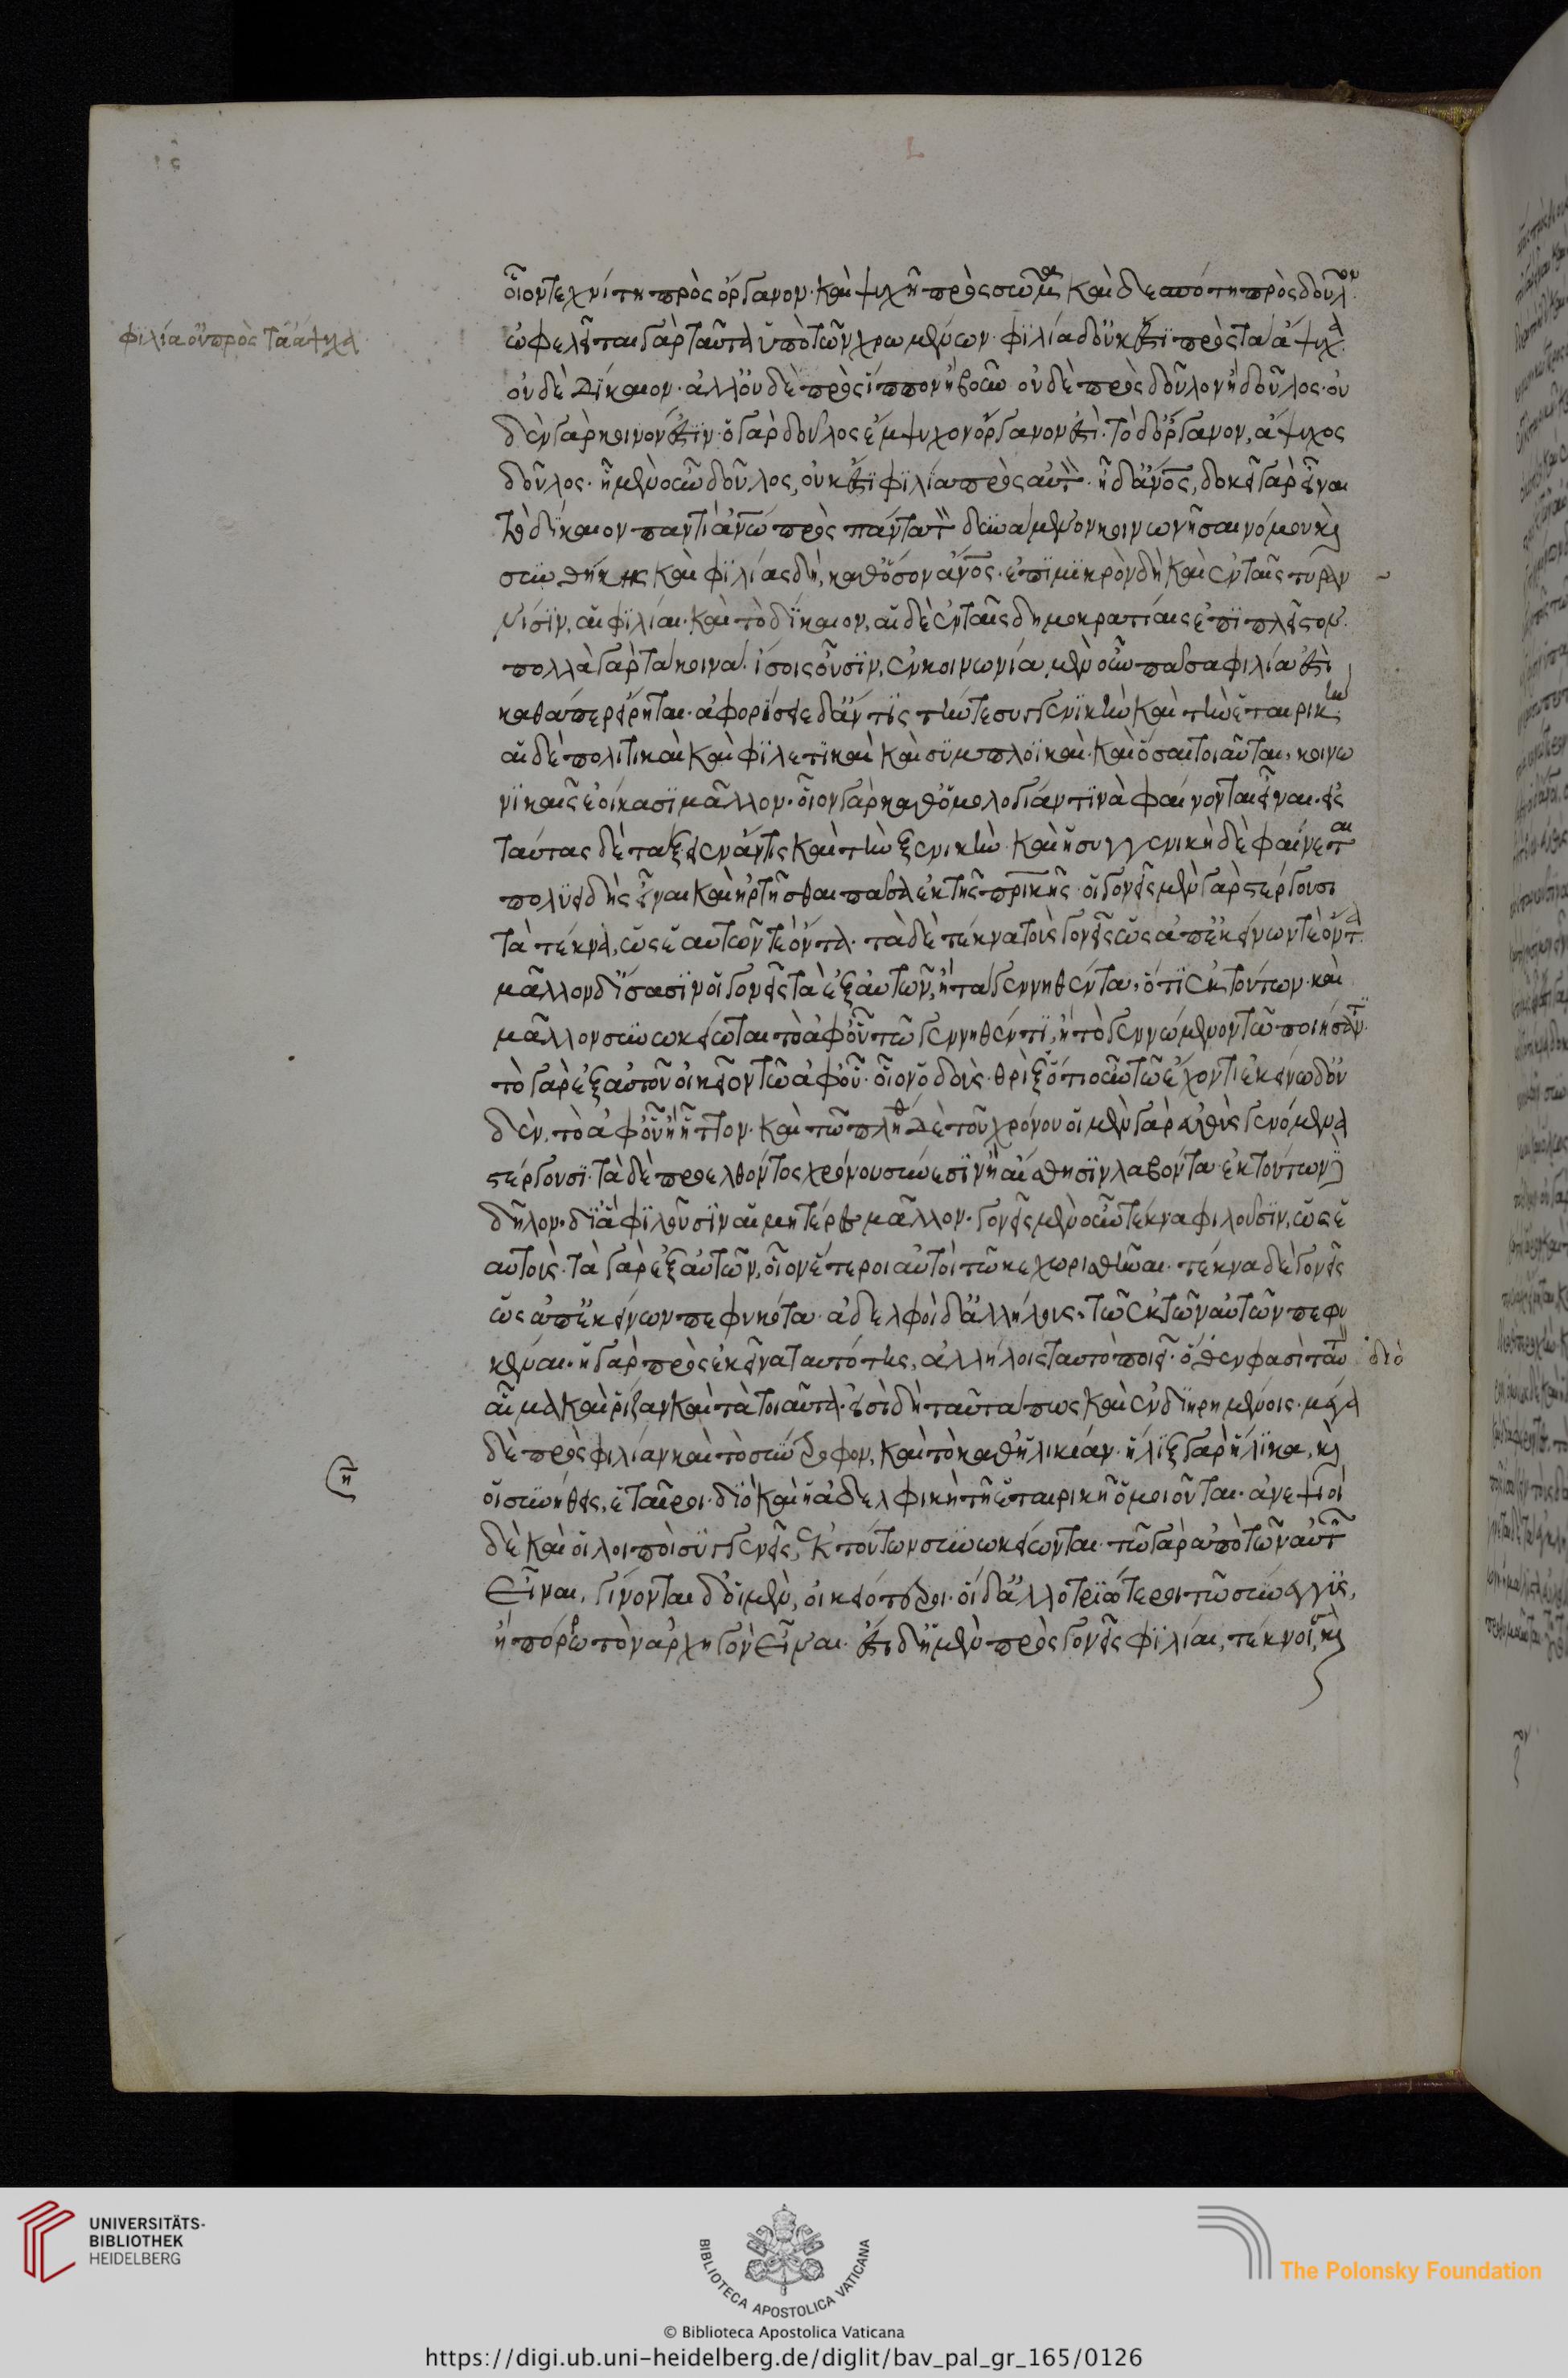 φιλία οὐ πρὸς τὰ ἄψυχα
οἷον τεχνίτη πρὸς ὄργανον· καὶ ψυχῆ πρὸς σῶμα καὶ δεσπότη πρὸς δοῦλον·
ὠφελεῖται γὰρ ταῦτα ὑπὸ τῶν χρωμένων· φιλία δ' οὐκ ἔστι πρὸς τὰ ἄψυχα
οὐδὲ δίκαιον· ἀλλ' οὐδὲ πρὸς ἵππον ἢ βοῦν οὐδὲ πρὸς δοῦλον ἧ δοῦλος· οὐ
δὲν γὰρ κοινόν ἐστιν· ὁ γὰρ δοῦλος ἔμψυχον ὄργανον ἐστὶ· τὸ δ' ὄργανον, ἄψυχος
δοῦλος· ἧ μὲν οὖν δοῦλος, οὐκ ἔστι φιλία πρὸς αὐτὸν· ἧ δ' ἄνος, δοκεῖ γὰρ εἶναι
τὸ δίκαιον παντὶ ἀνω πρὸς πάντα τὸν δυνάμενον κοινωνῆσαι νόμου καὶ
συνθήκης καὶ φιλίας δὴ, καθ' ὅσον ἄνος· ἐπὶ μικρὸν δὴ καὶ ἐν ταῖς τυραν
νίσιν, αἱ φιλίαι· καὶ τὸ δίκαιον, αἱ δὲ ἐν ταῖς δημοκρατίαις ἐπὶ πλεῖστον·
πολλὰ γὰρ τὰ κοινὰ· ἴσοις οὖσιν, ἐν κοινωνία μὲν οὖν πᾶσα φιλία ἐστὶ
καθάπερ εἴρηται· ἀφορίσειε δ' ἄν τις τήν τε συγγενικὴν καὶ τὴν ἑταιρικὴν
αἱ δὲ πολιτικαὶ καὶ φιλετικαὶ καὶ συμπλοϊκαὶ· καὶ ὅσαι τοιαῦται, κοινω
νικαῖς ἐοίκασι μᾶλλον· οἷον γὰρ καθ' ὁμολογίαν τινὰ φαίνονται εἶναι· εἰς
ταύτας δὲ τάξειεν ἄν τις καὶ τὴν ξενικὴν· καὶ ἡ συγγενικὴ δὲ φαίνεται
πολυειδὴς εἶναι καὶ ἠρτῆσθαι πᾶσα ἐκ τῆς πρικῆς· οἱ γονεῖς μὲν γὰρ στέργουσι
τὰ τέκνα, ὡς ἑαυτῶν τι ὄντα· τὰ δὲ τέκνα τοὺς γονεῖς ὡς ἀπ' ἐκείνων τι ὄντα
μᾶλλον δ' ἴσασιν οἱ γονεῖς τὰ ἐξ αὐτῶν, ἢ τὰ γεννηθέντα, ὅτι ἐκ τούτων· καὶ
μᾶλλον συνωκείωται τὸ ἀφ' οὗ τῶ γεννηθέντι, ἢ τὸ γεννώμενον τῶ ποιήσαντι·
τὸ γὰρ ἐξ αὐτοῦ οἰκεῖον τῶ ἀφ' οὗ· οἷον ὀδοὺς· θρὶξ ὁτιοῦν τῶ ἔχοντι ἐκείνω δ' οὐ
δὲν, τὸ ἀφ' οὗ ἢ ἧττον· καὶ τῶ πλήθ δὲ τοῦ χρόνου οἱ μὲν γὰρ εὐθὺς γενόμενα
στέργουσι· τὰ δὲ προελθόντος χρόνου σύνεσιν ἢ αἴσθησιν λαβόντα· ἐκ τούτων
δῆλον· δι' ἃ φιλοῦσιν αἱ μητέρες μᾶλλον· γονεῖς μὲν οὖν τέκνα φιλοῦσιν, ὡς ἑ
αυτοὺς· τὰ γὰρ ἐξ αὐτῶν, οἷον ἕτεροι αὐτοὶ τῶ κεχωρίσθαι· τέκνα δὲ γονεῖς
ὡς ἀπ' ἐκείνων πεφυκότα· ἀδελφοὶ δ' ἀλλήλους, τῶ ἐκ τῶν αὐτῶν πεφυ
κέναι· ἡ γὰρ πρὸς ἐκεῖνα ταυτότης, ἀλλήλοις ταυτὸ ποιεῖ· ὅθεν φασὶ ταὐτὸν
διὸ
αἷμα καὶ ῥίζαν καὶ τὰ τοιαῦτα· εἰσὶ δὴ ταὐτὸ πως καὶ ἐν διῃρημένοις· μέγα
δὲ πρὸς φιλίαν καὶ τὸ σύντροφον, καὶ τὸ καθ' ἡλικίαν· ἧλιξ γὰρ ἥλικα, καὶ
ση
οἱ συνήθεις, ἑταῖροι· διὸ καὶ ἡ ἀδελφικὴ τῆ ἑταιρικῆ ὁμοιοῦται· ἀνεψιοὶ
δὲ καὶ οἱ λοιποὶ συγγενεῖς, ἐκ τούτων συνωκείωνται· τῶ γὰρ ἀπὸ τῶν αὐτῶν
εἶναι, γίνονται δ' οἱ μὲν, οἰκειότεροι· οἱ δ' ἀλλοτριώτεροι τῶ σύνεγγυς,
ἢ πόρρω τὸν ἀρχηγὸν εἶναι· ἔστι δ' ἡ μὲν πρὸς γονεῖς φιλίαι, τέκνοις, καὶ
UNIVERSITÄTS-
BIBLIOTHEK
HEIDELBERG
BIBLIOTECA APOSTOLICA VATICANA
The Polonsky Foundation
© Biblioteca Apostolica Vaticana
https://digi.ub.uni-heidelberg.de/diglit/bav_pal_gr_165/0126